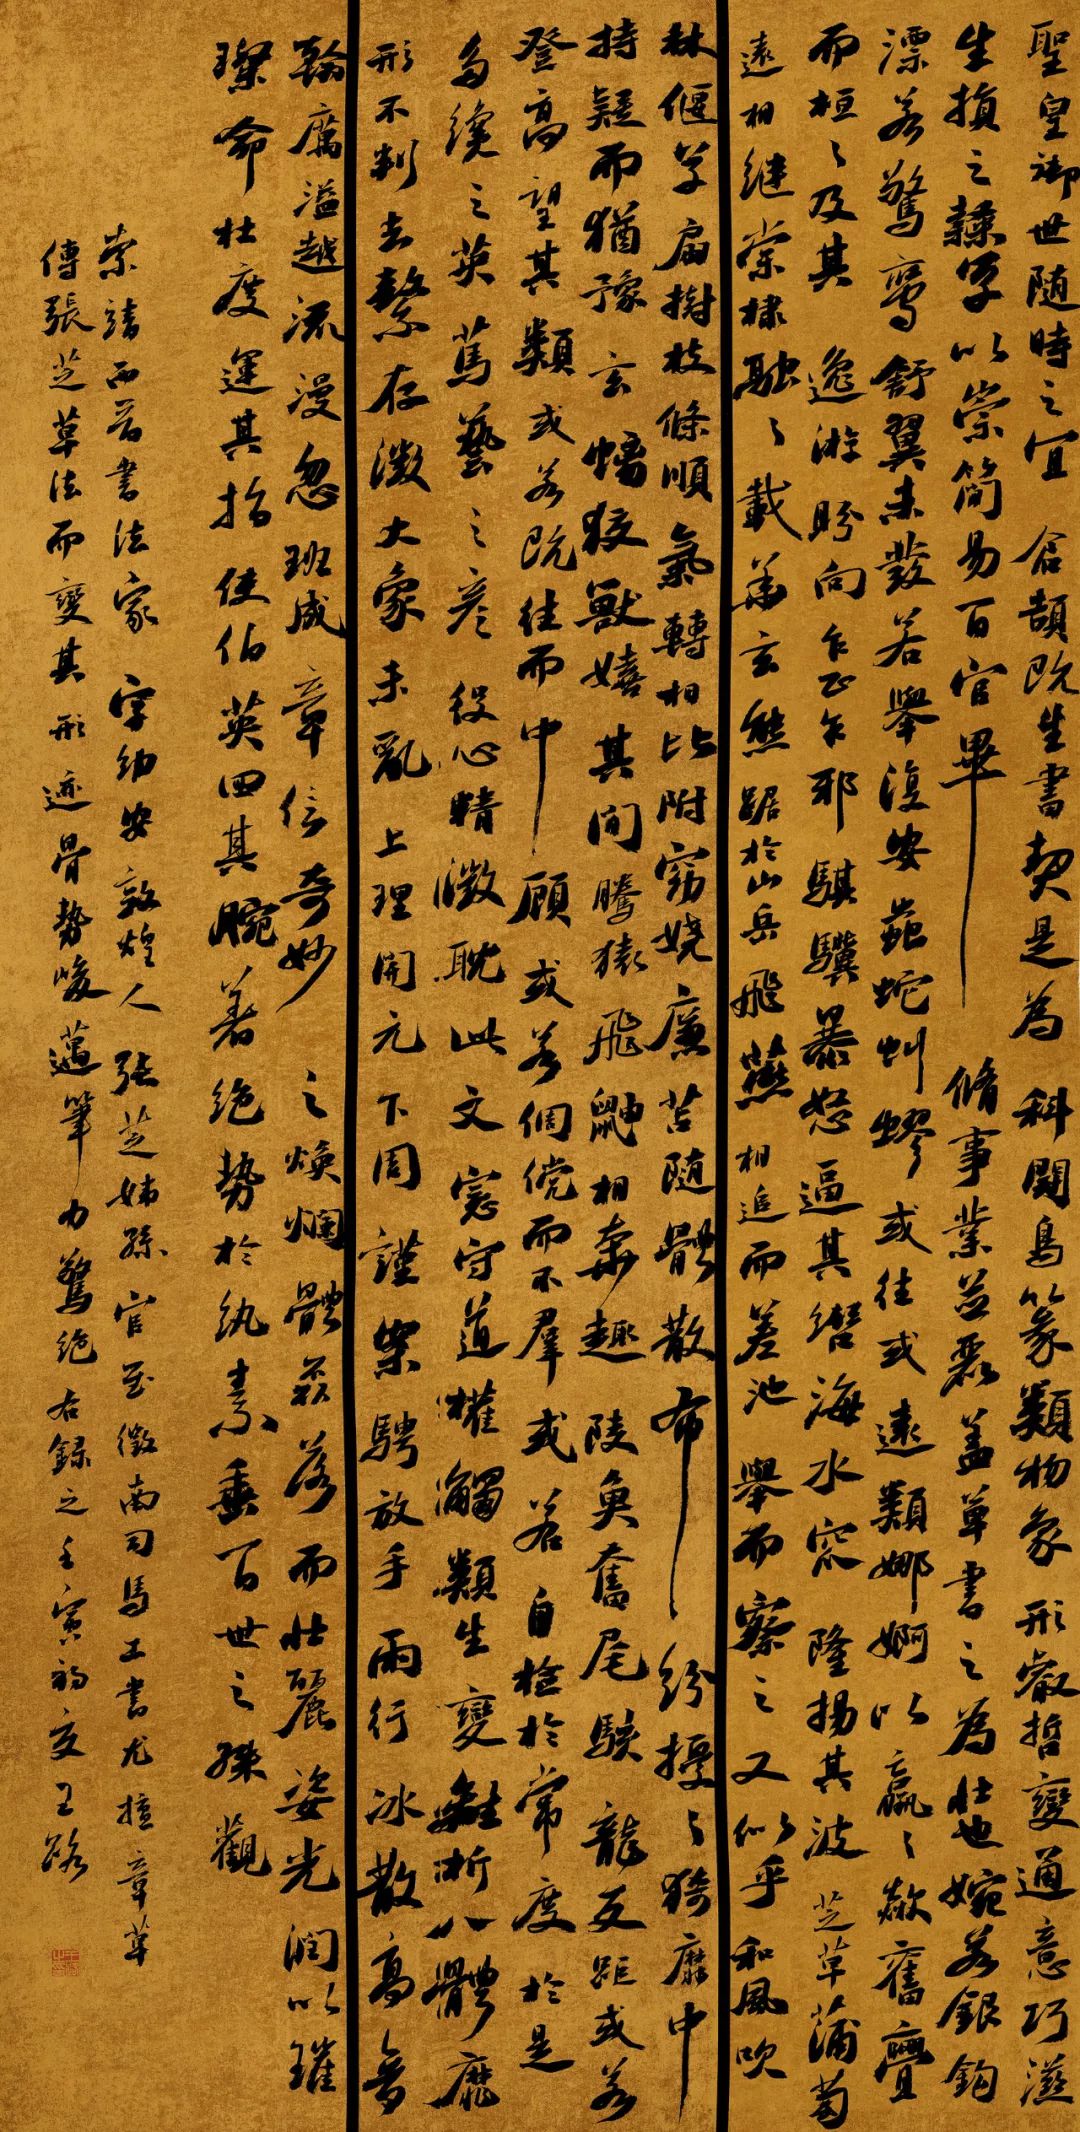 聖皇御世随時之宜倉頡既生書契是為科鬪鳥篆類物象形叡哲變通意巧滋
生損之隸草以崇簡易百官畢脩事業並麗盖草書之為壯也婉若銀鈎
漂若驚鸞舒翼未發若舉復安蟲蛇虯蟉或往或還類娜婀以羸羸欻奮亹
而桓々及其逸游盻向乍正乍邪騏驥暴怒逼其轡海水窊隆揚其波芝草蒲萄
還相継棠棣融々載其華玄熊踞於山岳飛燕相追而差池舉而察之又似乎和風吹
林偃草扇樹枝條順氣轉相比附窈嬈廉苫随體散布紛擾々猗靡中
持疑而猶豫玄螭狡獸嬉其間騰猿飛鼬相奔趣陵魚奮尾駭龍反距或若
登高望其類或若既往而中顧或若倜儻而不羣或若自檢於常度於是
多才之英篤藝之彦役心精微耽此文憲守道權觸類生變離析八體靡
形不判去繁存微大象未亂上理開元下周謹案騁放手雨行冰散高音
翰厲溢越流漫忽班成章信奇妙之焕爛體磊落而壯麗姿光潤以璀
璨命杜度運其指使伯英迴其腕著絶勢於紈素垂百世之殊觀
索靖西晋書法家字幼安敦煌人張芝姊孫官至征南司馬工書尤擅章草
傳張芝草法而變其形迹骨勢峻邁筆力驚絶右録之壬寅初夏王路